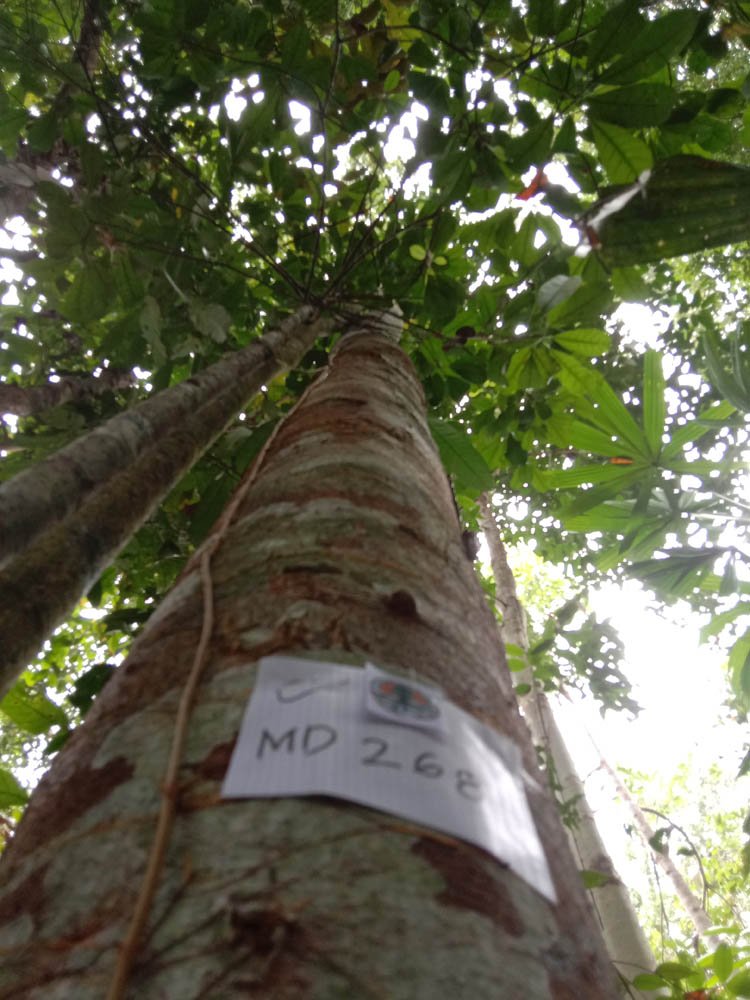 MD 268